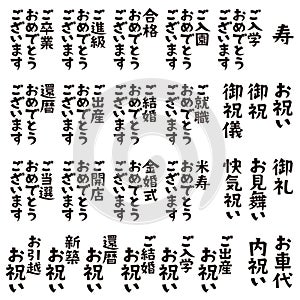 寿
ご入学
おめでとう
ございます
ご入園
おめでとう
ございます
合格
おめでとう
ございます
ご進級
おめでとう
ございます
ご卒業
おめでとう
ございます
お祝い
御祝
御祝儀
ご就職
おめでとう
ございます
ご結婚
おめでとう
ございます
ご出産
おめでとう
ございます
還暦
おめでとう
ございます
御礼
お見舞い
快気祝い
米寿
おめでとう
ございます
金婚式
おめでとう
ございます
ご開店
おめでとう
ございます
ご当選
おめでとう
ございます
お車代
内祝い
ご出産
お祝い
ご入学
お祝い
ご結婚
お祝い
還暦
お祝い
新築
お祝い
お引越
お祝い